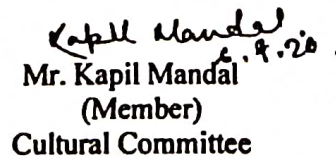 Kapil Mandal
Mr. Kapil Mandal
(Member)
Cultural Committee